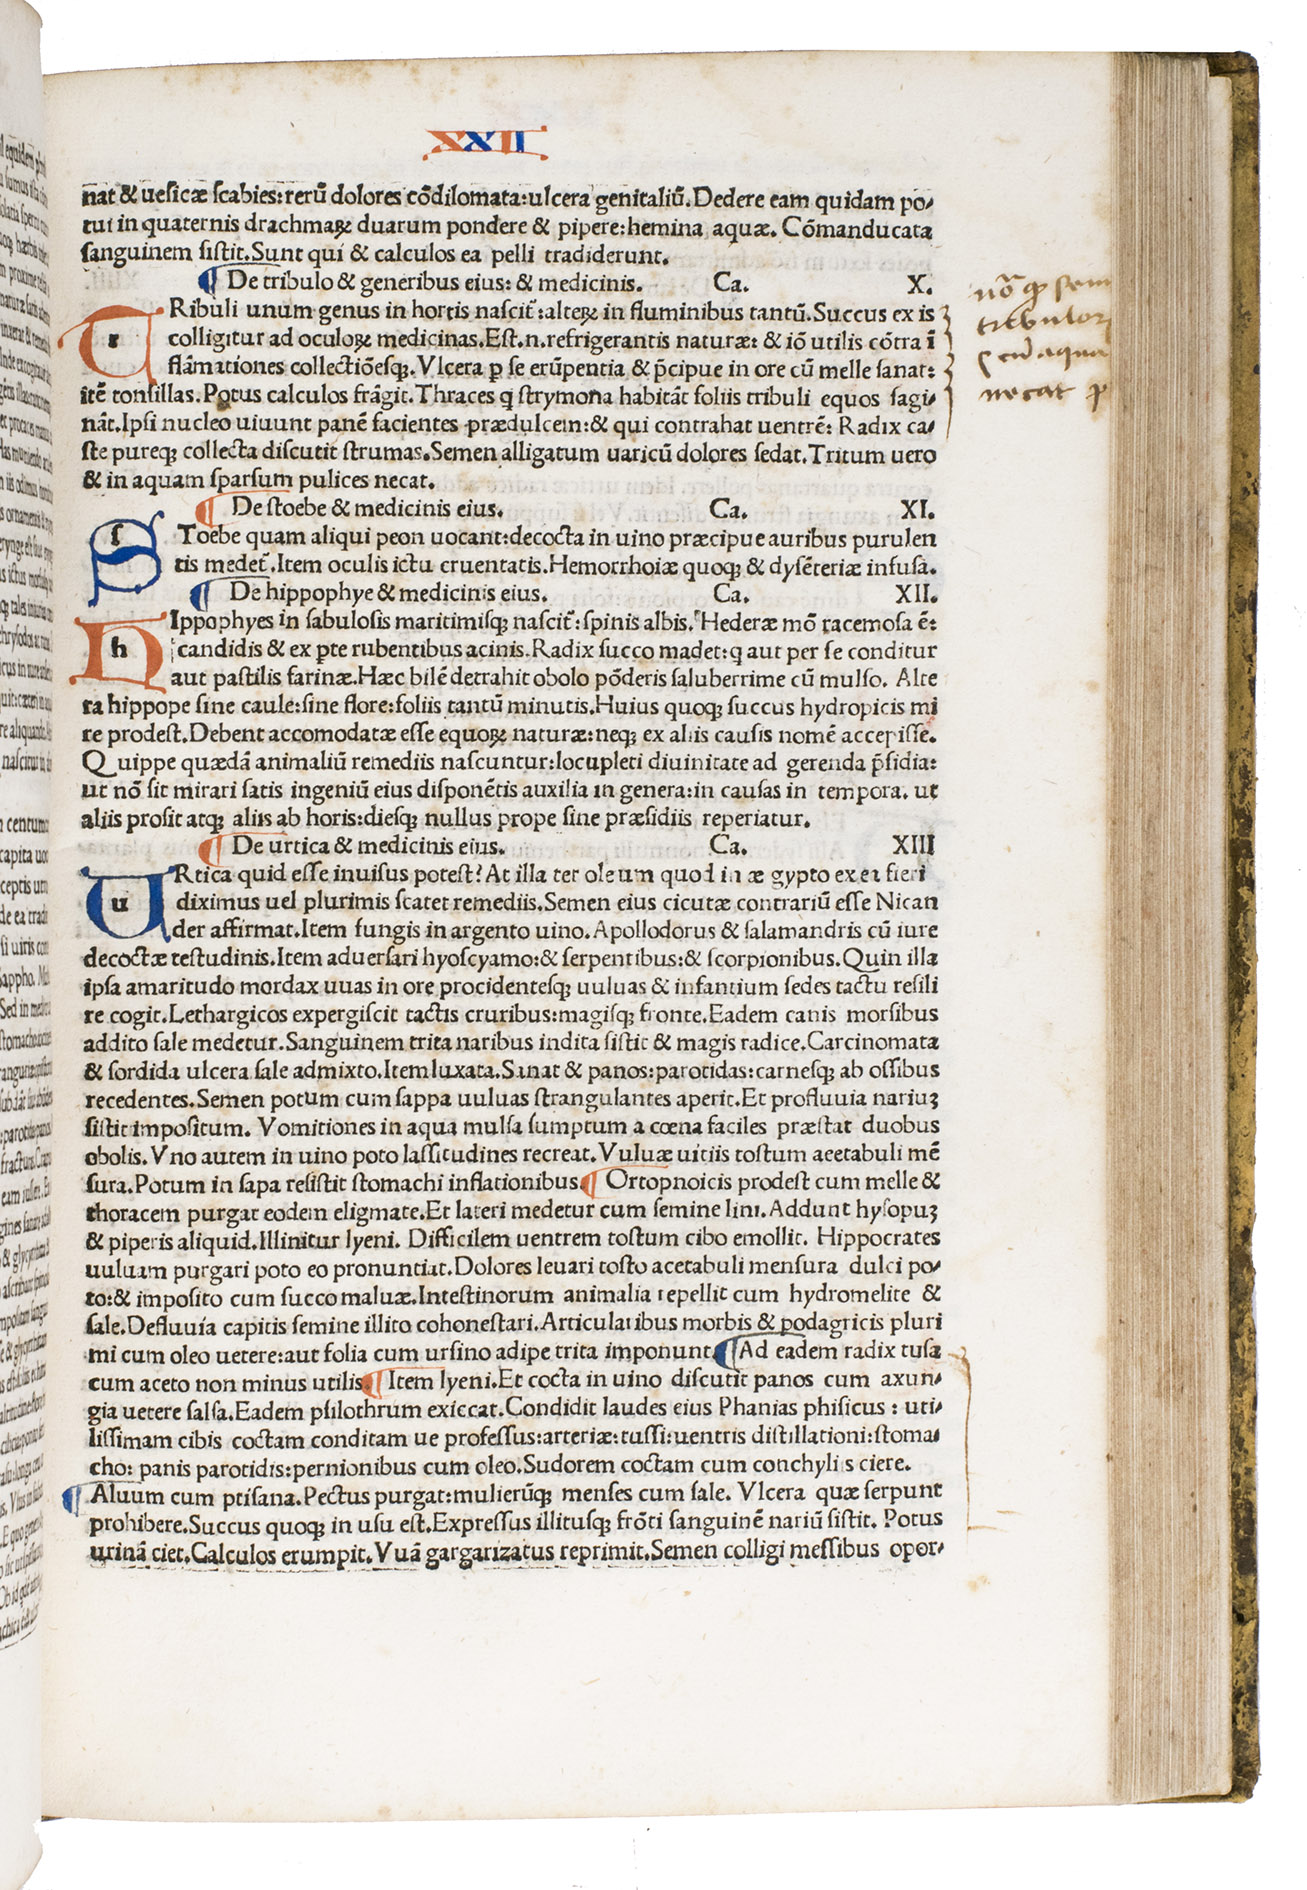 XXII
nat & uesicæ scabies:rerū dolores cōdilomata:ulcera genitaliū.Dedere eam quidam po-
tui in quaternis drachmaꝝ duarum pondere & pipere:hemina aquæ. Cōmanducata
sanguinem sistit.Sunt qui & calculos ea pelli tradiderunt.
¶ De tribulo & generibus eius: & medicinis. Ca. X.
TRibuli unum genus in hortis nascit̄:alteꝝ in fluminibus tantū.Succus ex is
colligitur ad oculoꝝ medicinas.Est.n.refrigerantis naturæ: & iō utilis cōtra ī
flāmationes collectiōesq;.Vlcera p se erūpentia & p̄cipue in ore cū melle sanat:
itē tonsillas.Potus calculos frāgit.Thraces q strymona habitāt foliis tribuli equos sagi-
nāt.Ipsi nucleo uiuunt panē facientes prædulcem:& qui contrahat uentrē: Radix ca-
ste pureq; collecta discutit strumas.Semen alligatum uaricū dolores sedat.Tritum uero
& in aquam sparsum pulices necat.
¶ De stoebe & medicinis eius. Ca. XI.
SToebe quam aliqui peon uocant:decocta in uino præcipue auribus purulen
tis medet̄.Item oculis ictu cruentatis.Hemorrhoiæ quoq; & dysēteriæ infusā.
¶ De hippophye & medicinis eius. Ca. XII.
hIppophyes in sabulosis maritimisq; nascit̄:spinis albis.Hederæ mō racemosa ē:
candidis & ex pte rubentibus acinis.Radix succo madet:q aut per se conditur
aut pastilis farinæ.Hæc bilē detrahit obolo pōderis saluberrime cū mulso. Alte
ra hippope sine caule:sine flore:foliis tantū minutis.Huius quoq; succus hydropicis mi
re prodest.Debent accomodatæ esse equoꝝ naturæ:neq; ex aliis causis nomē accepisse.
Quippe quædā animaliū remediis nascuntur:locupleti diuinitate ad gerenda p̄sidia:
ut nō sit mirari satis ingeniū eius disponētis auxilia in genera:in causas in tempora. ut
aliis prosit atq; aliis ab horis:diesq; nullus prope sine præsidiis reperiatur.
¶ De urtica & medicinis eius. Ca. XIII
URtica quid esse inuisus potest?At illa ter oleum quod in ægypto ex ea fieri
diximus uel plurimis scatet remediis.Semen eius cicutæ contrariū esse Nican
der affirmat.Item fungis in argento uino.Apollodorus & salamandris cū iure
decoctæ testudinis.Item aduersari hyoscyamo:& serpentibus:& scorpionibus.Quin illa
ipsa amaritudo mordax uuas in ore procidentesq; uuluas & infantium sedes tactu resili
re cogit.Lethargicos expergiscit tactis cruribus:magisq; fronte.Eadem canis morsibus
addito sale medetur.Sanguinem trita naribus indita sistit & magis radice.Carcinomata
& sordida ulcera sale admixto.Item luxata.Sanat & panos:parotidas:carnesq; ab ossibus
recedentes.Semen potum cum sappa uuluas strangulantes aperit.Et profluuia nariuꝫ
sistit impositum. Vomitiones in aqua mulsa sumptum a cœna faciles præstat duobus
obolis.Vno autem in uino poto lassitudines recreat.Vuluæ uitiis tostum acetabuli mē
sura.Potum in sapa resistit stomachi inflationibus.¶ Ortopnoicis prodest cum melle &
thoracem purgat eodem eligmate.Et lateri medetur cum semine lini.Addunt hysopuꝫ
& piperis aliquid.Illinitur lyeni. Difficilem uentrem tostum cibo emollit. Hippocrates
uuluam purgari poto eo pronuntiat.Dolores leuari tosto acetabuli mensura dulci po-
to:& imposito cum succo maluæ.Intestinorum animalia repellit cum hydromelite &
sale.Defluuia capitis semine illito cohonestari.Articularibus morbis & podagricis pluri
mi cum oleo uetere:aut folia cum ursino adipe trita imponunt.¶Ad eadem radix tusa
cum aceto non minus utilis.¶Item lyeni.Et cocta in uino discutit panos cum axun-
gia uetere salsa.Eadem psilothrum exiccat.Condidit laudes eius Phanias phisicus : uti-
lissimam cibis coctam conditam ue professus:arteriæ:tussi:uentris distillationi:stoma-
cho: panis parotidis:pernionibus cum oleo.Sudorem coctam cum conchyliis ciere.
¶ Aluum cum ptisana.Pectus purgat:mulierūq; menses cum sale. Vlcera quæ serpunt
prohibere.Succus quoq; in usu est.Expressus illitusq; frōti sanguinē nariū sistit. Potus
urinā ciet.Calculos erumpit.Vuā gargarizatus reprimit.Semen colligi messibus opor-
tribulor
necat